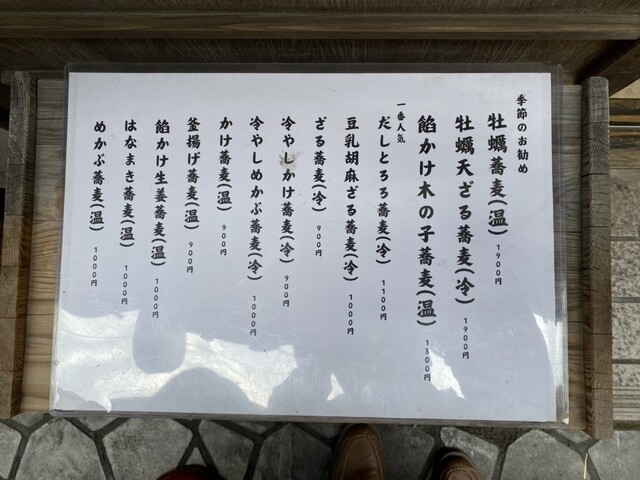 季節のお勧め
牡蠣蕎麦(温) 1900円
牡蠣天ざる蕎麦(冷) 1900円
餡かけ木の子蕎麦(温) 1300円
一番人気
だしとろろ蕎麦(冷) 1100円
豆乳胡麻ざる蕎麦(冷) 1000円
ざる蕎麦(冷) 900円
冷やしかけ蕎麦(冷) 900円
冷やしめかぶ蕎麦(冷) 1000円
かけ蕎麦(温) 900円
釜揚げ蕎麦(温) 900円
餡かけ生姜蕎麦(温) 1000円
はなまき蕎麦(温) 1000円
めかぶ蕎麦(温) 1000円